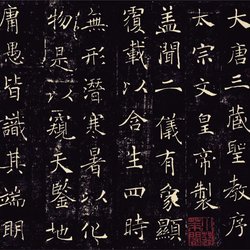 大唐三藏聖教序
太宗文皇帝製
盖聞二儀有象顯
覆載以含生四時
無形潜寒暑以化
物是以窺天鑒地
庸愚皆識其端明